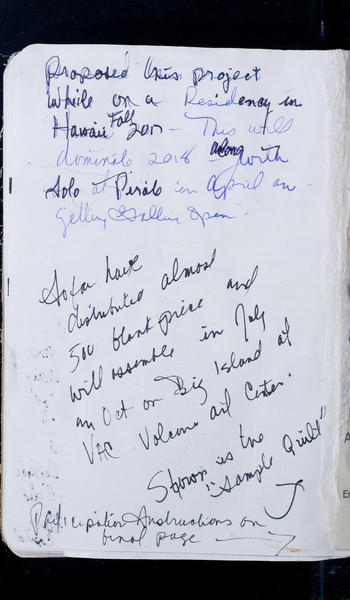 Proposed this project
While on a Residency in
Hawaii Fall 2017 - This will
dominate 2018 along with
Solo at in April an
Open.
So far have
distributed almost
500 blank piece and
will assemble in July
an Oct on Big Island at
VAC Volcano Art Center.
Shown is the
"Sample Quilt"
Participation Instructions on
final page